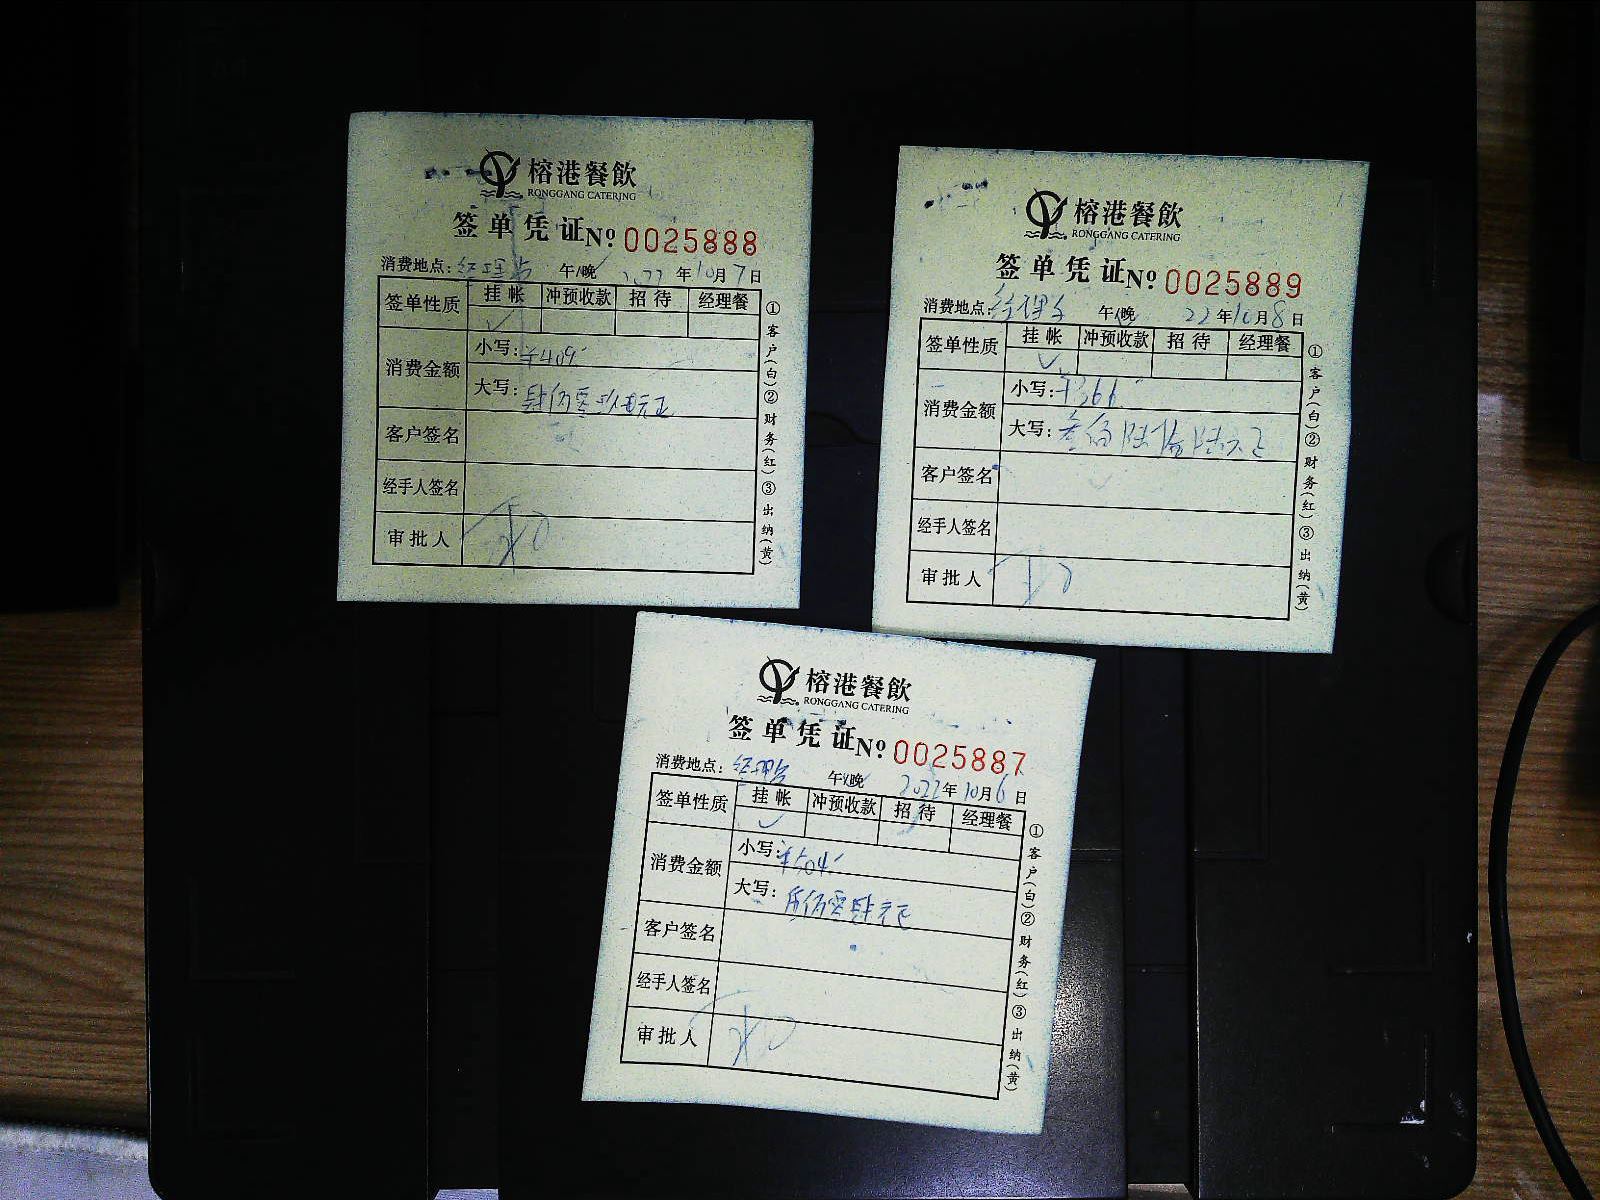 榕港餐飲
RONGGANG CATERING
签单凭证 Nº 0025888
消费地点: 经理室 午/晚 2022 年 10 月 7 日
签单性质 挂帐 冲预收款 招待 经理餐
消费金额 小写: ¥409.-
大写: 肆佰零玖元正
客户签名
经手人签名
审批人
①客户(白)②财务(红)③出纳(黄)
榕港餐飲
RONGGANG CATERING
签单凭证 Nº 0025889
消费地点: 午/晚 22 年 10 月 8 日
签单性质 挂帐 冲预收款 招待 经理餐
消费金额 小写: ¥366
大写: 叁佰陆拾陆元正
客户签名
经手人签名
审批人
①客户(白)②财务(红)③出纳(黄)
榕港餐飲
RONGGANG CATERING
签单凭证 Nº 0025887
消费地点: 午/晚 2022 年 10 月 6 日
签单性质 挂帐 冲预收款 招待 经理餐
消费金额 小写: ¥504.-
大写: 伍佰零肆元正
客户签名
经手人签名
审批人
①客户(白)②财务(红)③出纳(黄)